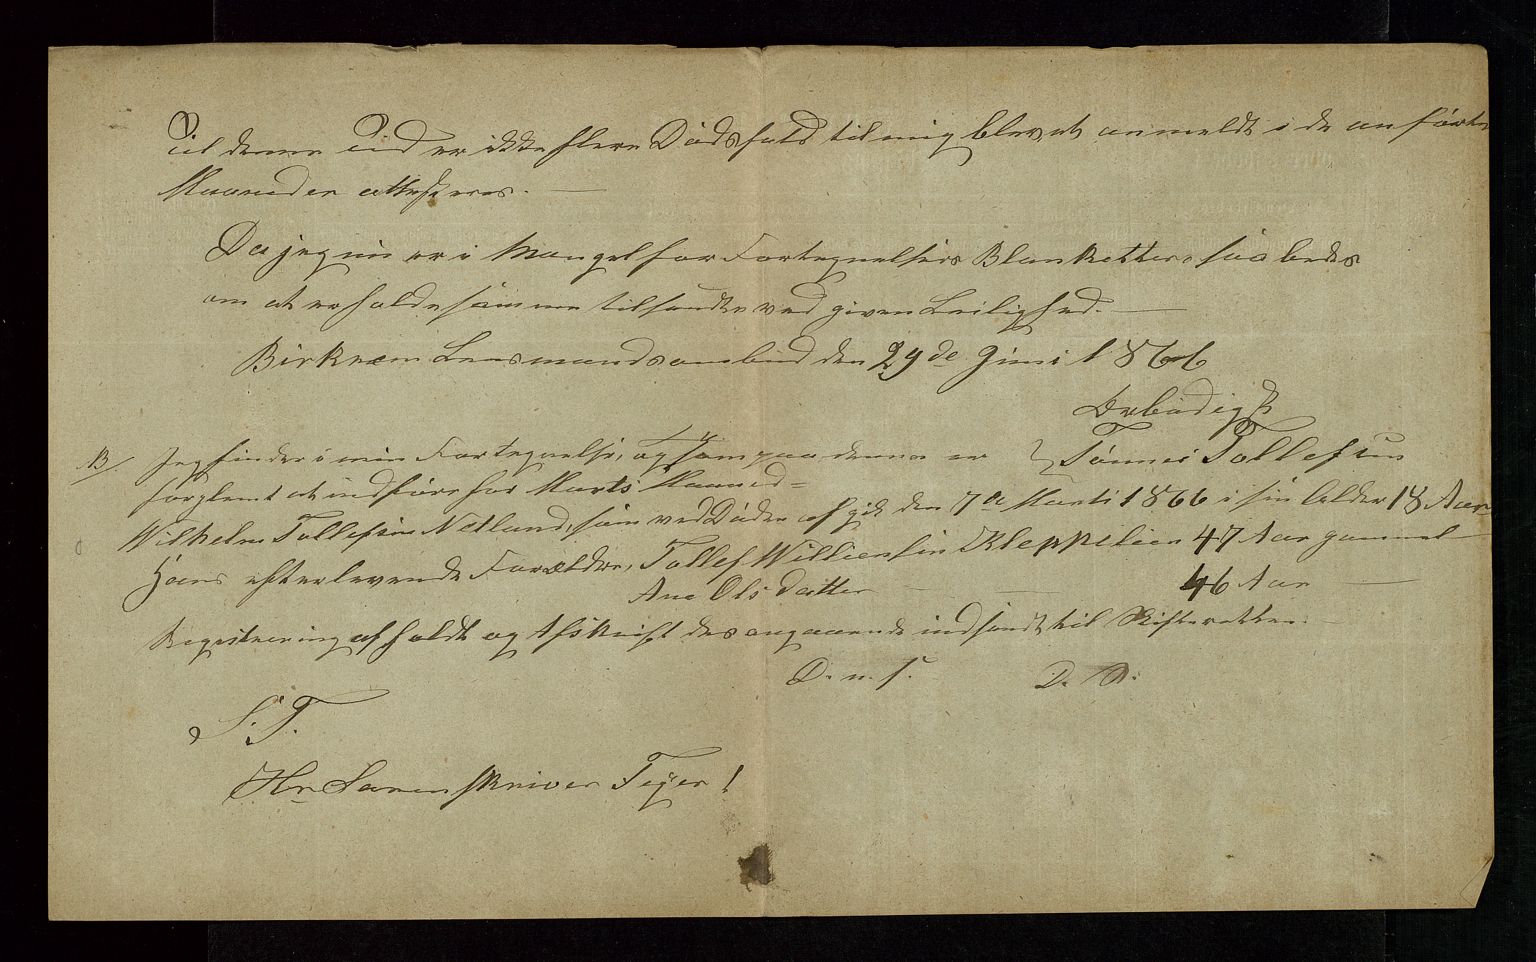 Til denne Tid er ikke flere Dødsfald til mig blevet anmeldt i de anførte
Maaneder attesteres. —
Da jeg nu er i Mangel for Fortegnelses Blanketter, saa bedes
om at erholde samme tilsendte ved given Leilighed. —
Birkrem Lensmandsombud den 29de Juni 1866
Ærbødigst
Tønnes Tollefsen
NB/ Jeg finder i min Fortegnelse, at som paa denne er
forglemt at indføre for Marts Maaned =
Wilhelm Tollefsen Netland, som ved Døden afgik den 7de Marts 1866 i sin Alder 18 Aar
Hans efterlevende Forældre, Tollef Williensen Kleppelien 47 Aar gammel
Ane Olsdatter — — 46 Aar —
Registrering afholdt og Afskrift desangaaende indsendt til Skifteretten. —
D. u. s. D. A.
S. T.
Hr Sorenskriver Feyer!